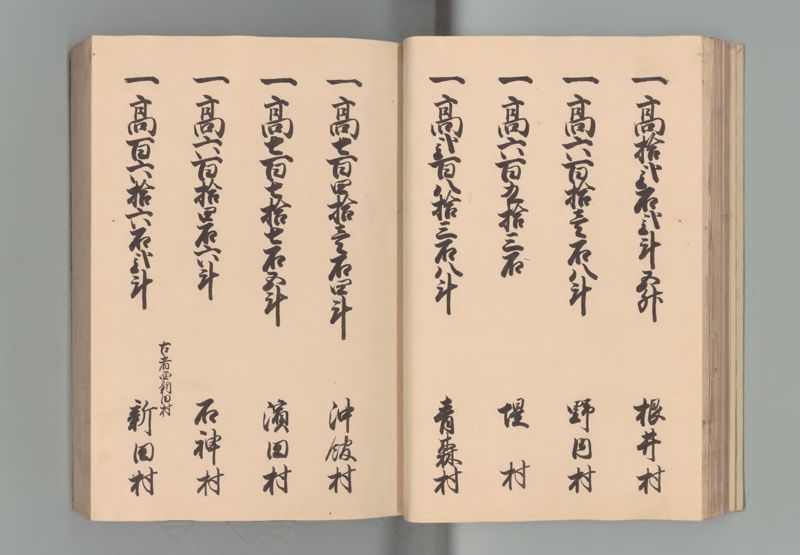 一高拾弐石弐斗五升 根井村
一高六百拾壱石八斗 野田村
一高六百九拾三石 堤村
一高弐百八拾三石八斗 青森村
一高七百四拾壱石四斗 沖舘村
一高七百七拾七石五斗 濱田村
一高六百拾四石六斗 石神村
古者西新田村
一高百六拾六石弐斗 新田村